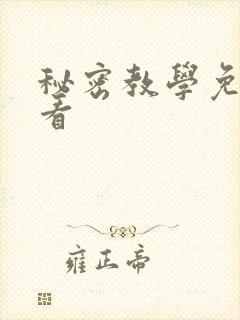 秘密教學免
看
雍正帝